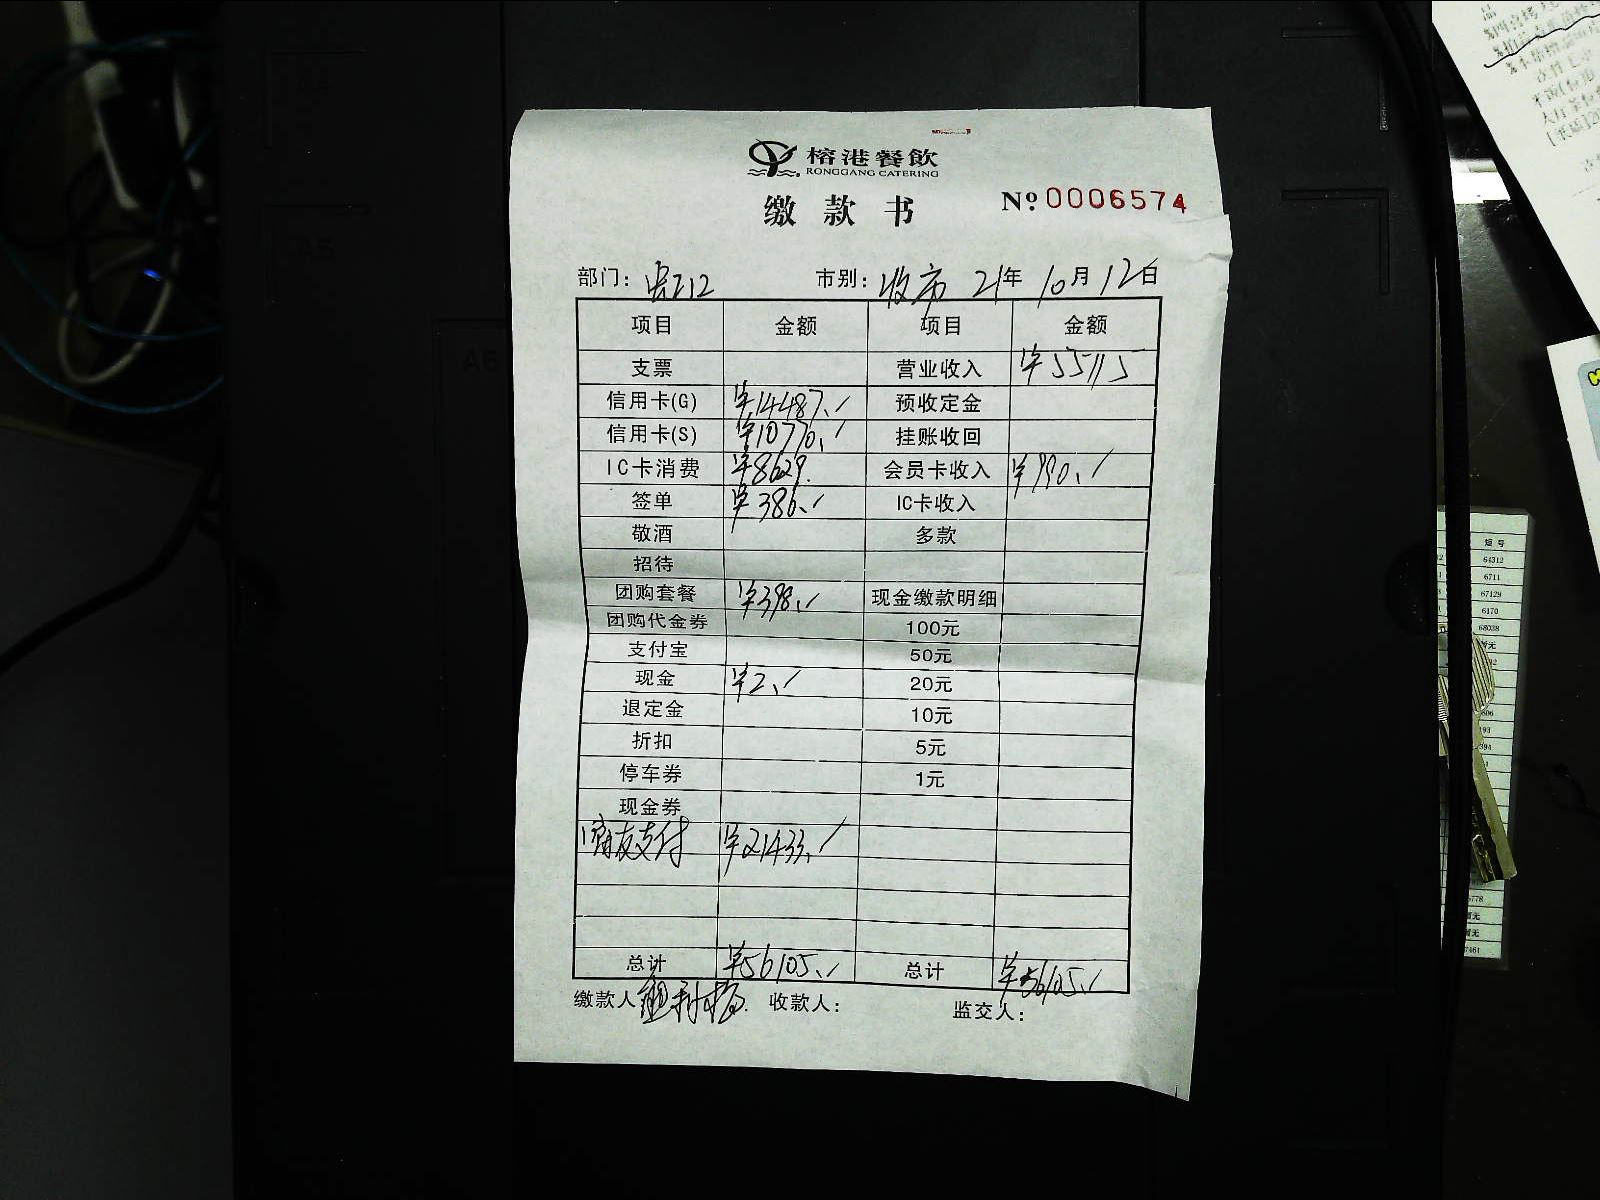 榕港餐飲
RONGGANG CATERING
缴款书 № 0006574
部门: 市别: 收市 21年 10月 12日
项目 金额 项目 金额
支票 营业收入 ¥55115
信用卡(G) ¥14487. 预收定金
信用卡(S) ¥10770. 挂账收回
IC卡消费 ¥8629. 会员卡收入 ¥990.
签单 ¥386. IC卡收入
敬酒 多款
招待
团购套餐 ¥398. 现金缴款明细
团购代金券 100元
支付宝 50元
现金 ¥2. 20元
退定金 10元
折扣 5元
停车券 1元
现金券
支付 ¥21433.
总计 ¥56105. 总计 ¥56105.
缴款人 收款人: 监交人:
短号
64312
6711
67129
6170
68038
A6